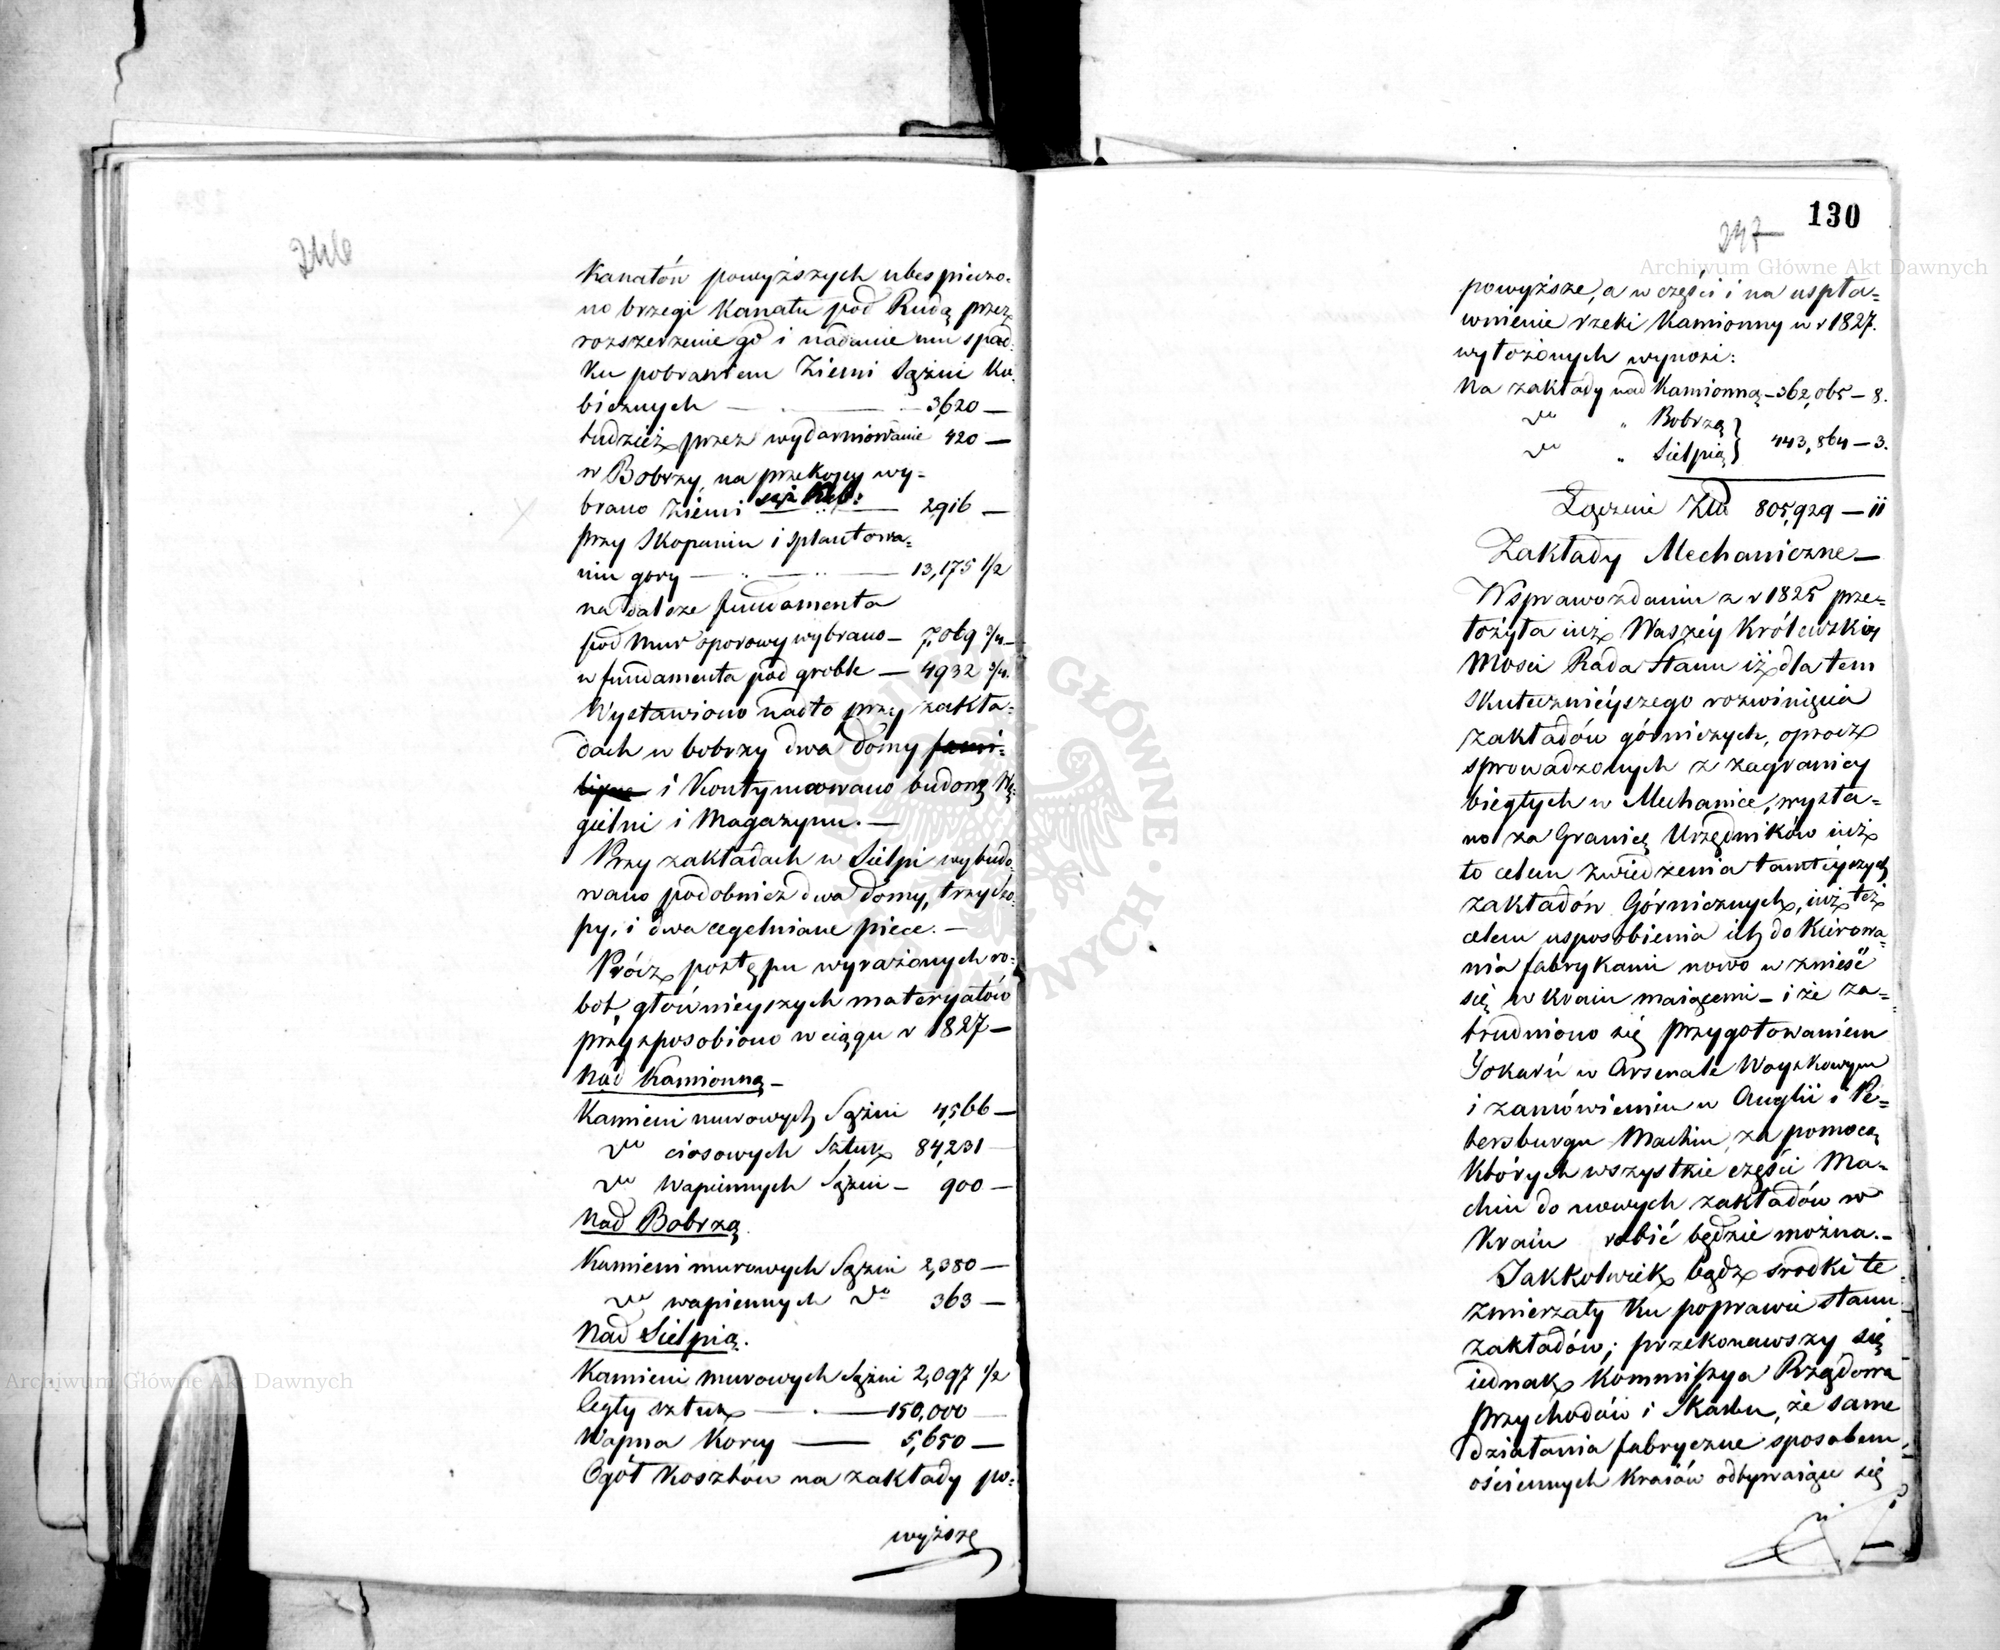 246
Kanałów powyższych ubespieczo-
no brzegi Kanału pod Rudą przez
rozszerzenie go i nadanie mu spad-
ku pobraniem Ziemi Sążni Ku-
bicznych — . — 3,620 —
tudzież przez wydarniowanie 420 —
w Bobrzy na przekopy wy-
brano Ziemi sąż: Kub: — 2,916 —
przy Skopaniu i splantowa=
niu gory — .. — .. — 13,175 1/2
na dalsze fundamenta
pod Mur oporowy wybrano — 7,069 3/4 —
w fundamenta pod groble — 4932 3/4.
Wystawiono nadto przy zakła-
dach w bobrzy dwa domy fami-
lijne i Kontynuowano budowę Wę-
gielni i Magazynu. —
Przy zakładach w Sielpi wybudo-
wano podobnież dwa domy, trzy szo-
py, i dwa cegelniane piece. —
Prócz postępu wyrażonych ro-
bot, głównieyszych materyałów
przysposobiono w ciągu r 1827 —
Nad Kamionną —
Kamieni murowych Sążni 4,566 —
do ciosowych Sztuk 84,231 —
do Wapiennych Sążni — 900 —
Nad Bobrzą.
Kamieni murowych Sążni 2,380 —
do wapiennych do 363 —
Nad Sielpią.
Kamieni murowych Sążni 2,097 1/2
Cegły sztuk — . — 150,000 —
Wapna Korcy — 5,650 —
Ogół Kosztów na zakłady po-
wyższe
130
247
powyższe, a w części i na uspła=
wnienie rzeki Kamionny w r 1827.
wyłożonych wynosi:
Na zakłady nad Kamionną — 362,065 — 8.
do " Bobrzą }
do " Sielpią } 443,864 — 3.
Łącznie Złp 805,929 — 11
Zakłady Mechaniczne —
W sprawozdaniu z r 1825 prze-
łożyła iuż Waszéy Królewskiey
Mosci Rada Stanu iż dla tem
Skutecznieyszego rozwinięcia
zakładów górniczych, oprocz
sprowadzonych z zagranicy
biegłych w Mechanice, wysła=
no za Granicę Urzędników iuż
to celem zwiedzenia tamteyszych
zakładów Górnicznych, iuż też
celem usposobienia ich do Kierowa-
nia fabrykami nowo w znieść
się w Kraiu maiącemi — i że za-
trudniono się przygotowaniem
Tokarń w Arsenale Woyskowym
i zamówieniem w Anglii i Pe-
tersburgu Machin, za pomocą
których wszystkie części Ma-
chin do nowych zakładów w
Kraiu robić będzie można. —
Jakkolwiek bądź srodki te
zmierzały Ku poprawie stanu
zakładów; przekonawszy się
iednak Kommissya Rządowa
Przychodów i Skarbu, że same
działania fabryczne sposobem
ościennych Kraiów odbywaiące się
Archiwum Główne Akt Dawnych
Archiwum Główne Akt Dawnych